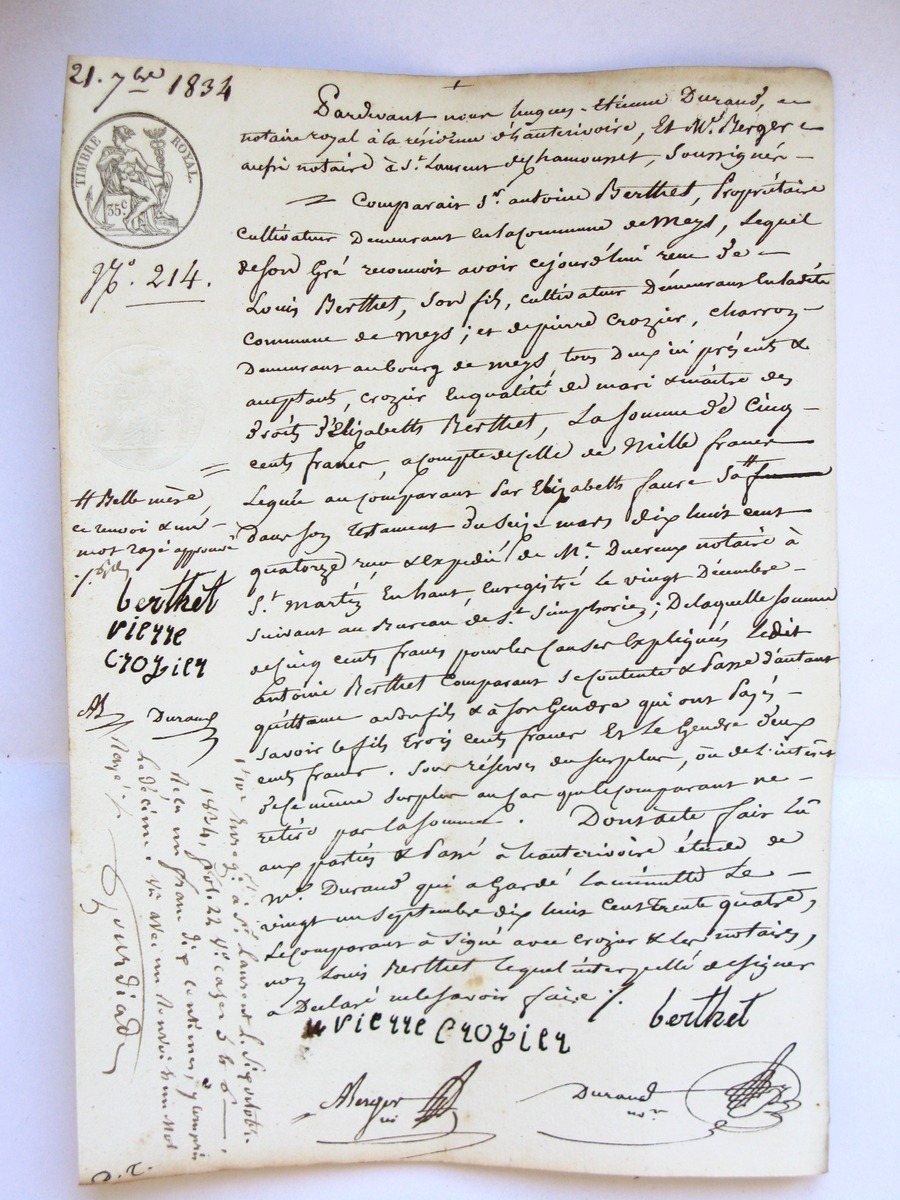 21. 7bre 1834
TIMBRE ROYAL.
35 c
N°. 214.
Pardevant nous hugues-Etienne Durand,
notaire royal à la résidence d'hauterivoire, Et Me. Berger
aussi notaire à St. Laurent de Chamousset, soussignés —
Comparait Sr. antoine Berthet, Propriétaire
Cultivateur Demeurant en la Commune de Meys, Lequel
de son Gré reconnoit avoir cejourd'hui reçu de —
Louis Berthet, son fils, cultivateur Demeurant en ladite
Commune de Meys ; et de pierre Crozier, charron —
Demeurant au bourg de meys tous deux ici présents &
acceptants, crozier en qualité de mari & maitre des
droits d'Elizabeth Berthet, La somme de Cinq —
cents francs, acompte de celle de Mille francs
Leguée au Comparant Par Elizabeth faure Sa #
Dans son Testament du Seize mars dix huit cent
quatorze reçu & expédié de Me. Ducreux notaire à
St. Martin En haut, Enregistré le vingt Décembre —
Suivant au Bureau de St. Simphorien ; De laquelle somme
de Cinq cents francs pour les Causes Expliquées Ledit
antoine Berthet Comparant Se Contente & Passe d'autant
quittance audit fils & à son Gendre qui ont Payés —
Savoir le fils Trois cents francs Et le Gendre deux
cents francs. Sous réserves du Surplus, ou de l'intérêt
de ce même Surplus au cas que le comparant ne —
retire pas la somme. Dont acte fait Lû
aux parties & Passé à hauterivoire étude de
Me. Durand qui a Gardé la minutte Le —
vingt un Septembre dix huit Cent trente quatre,
Le Comparant à Signé avec Crozier & les notaires,
non Louis Berthet Lequel interpellé de signer
a Declaré ne le savoir faire ./.
vierre crozier
berthet
ABerger
nre
Durand
nore
# Belle mère
ce renvoi & un
mot rayé approuvé
berthet
vierre
crozier
AB
Durand
Enregé à St. Laurent le Six octobre
1834, fol. 22 Vo. cases 5 & 6 —,
Reçu un franc dix centimes, y compris
le décime. Vu avec un Renvoi & un Mot
Rayé ./.